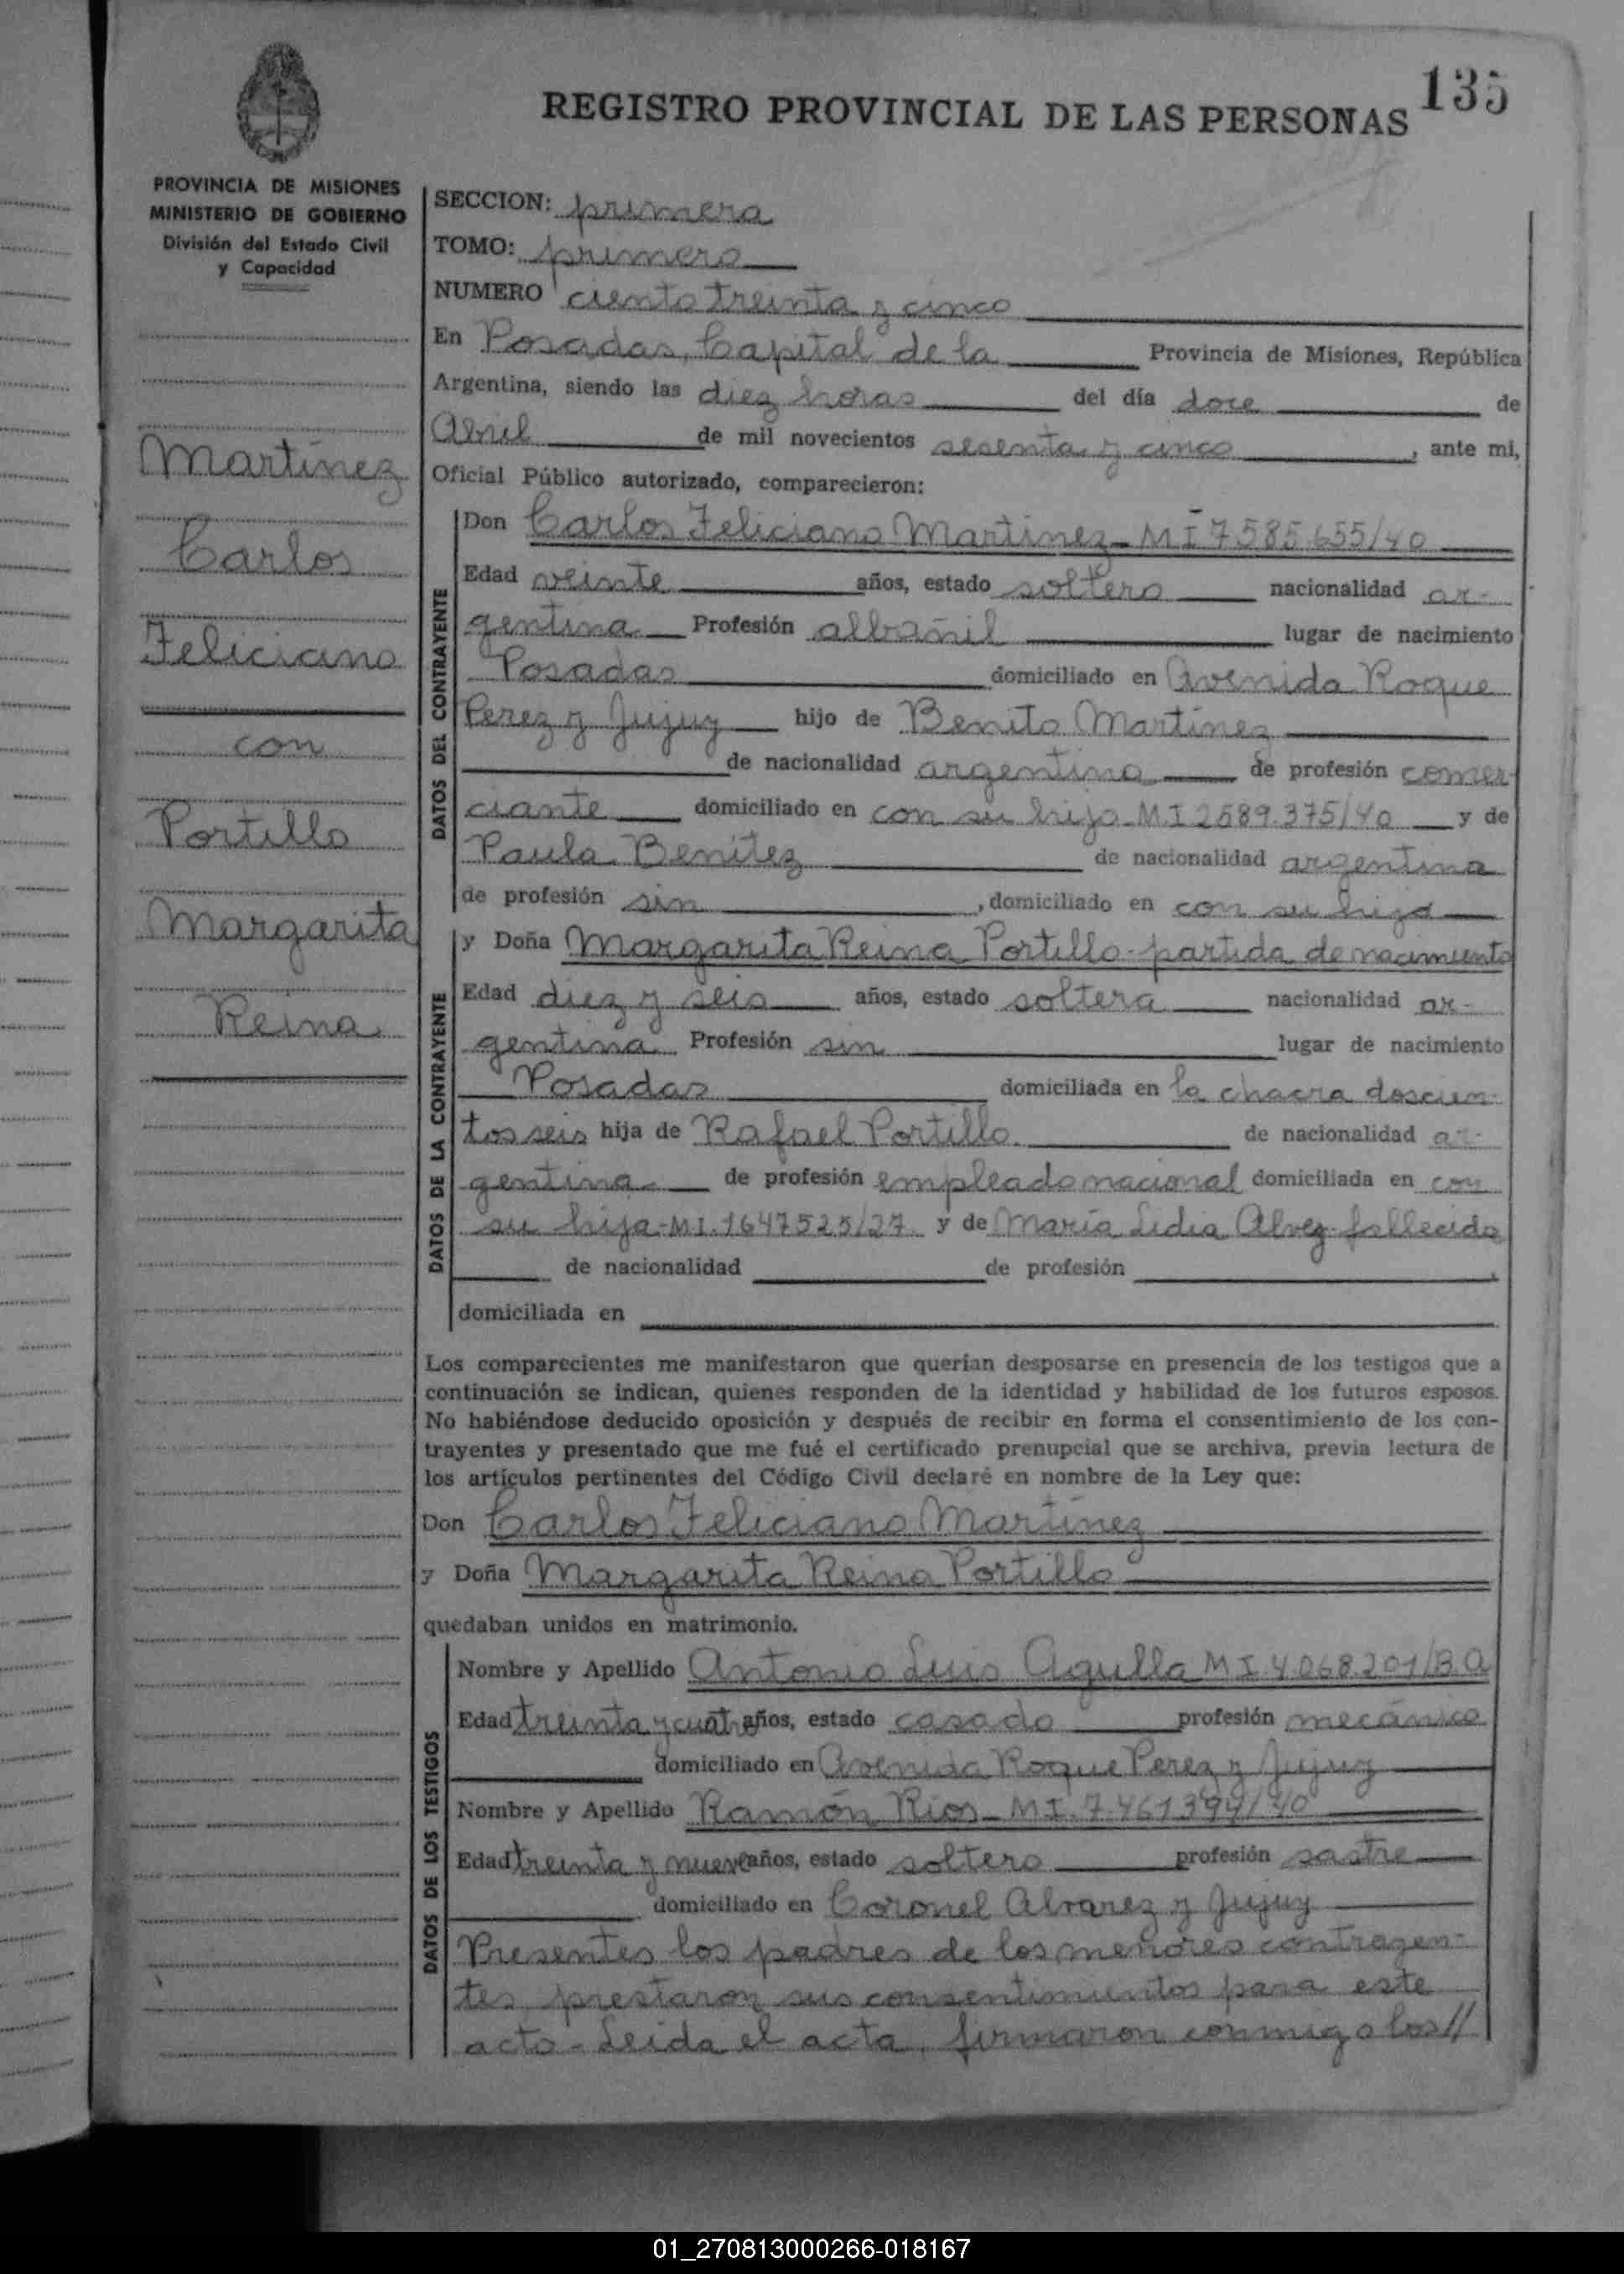 135
REGISTRO PROVINCIAL DE LAS PERSONAS
PROVINCIA DE MISIONES
MINISTERIO DE GOBIERNO
División del Estado Civil
y Capacidad
Martínez
Carlos
Feliciano
con
Portillo
Margarita
Reina
SECCION: primera
TOMO: primero
NUMERO ciento treinta y cinco
En Posadas, Capital de la Provincia de Misiones, República
Argentina, siendo las diez horas del día doce de
Abril de mil novecientos sesenta y cinco, ante mi,
Oficial Público autorizado, comparecieron:
DATOS DEL CONTRAYENTE
Don Carlos Feliciano Martínez - MI 7585.655/40
Edad veinte años, estado soltero nacionalidad ar-
gentina Profesión albañil lugar de nacimiento
Posadas domiciliado en Avenida Roque
Perez y Jujuy hijo de Benito Martínez
de nacionalidad argentino de profesión comer-
ciante domiciliado en con su hijo - M.I 2589.375/40 y de
Paula Benítez de nacionalidad argentina
de profesión sin, domiciliado en con su hijo
DATOS DE LA CONTRAYENTE
y Doña Margarita Reina Portillo - partida de nacimiento
Edad diez y seis años, estado soltera nacionalidad ar-
gentina Profesión sin lugar de nacimiento
Posadas domiciliada en la chacra doscien-
tos seis hija de Rafael Portillo de nacionalidad ar-
gentina de profesión empleado nacional domiciliada en con
su hija - M.I. 1647525/27 y de María Lidia Alvez fallecida
de nacionalidad de profesión ,
domiciliada en
Los comparecientes me manifestaron que querían desposarse en presencia de los testigos que a
continuación se indican, quienes responden de la identidad y habilidad de los futuros esposos.
No habiéndose deducido oposición y después de recibir en forma el consentimiento de los con-
trayentes y presentado que me fué el certificado prenupcial que se archiva, previa lectura de
los artículos pertinentes del Código Civil declaré en nombre de la Ley que:
Don Carlos Feliciano Martínez
y Doña Margarita Reina Portillo
quedaban unidos en matrimonio.
DATOS DE LOS TESTIGOS
Nombre y Apellido Antonio Luis Agulla M I 4.068.201/B.A
Edad treinta y cuatro años, estado casado profesión mecánico
domiciliado en Avenida Roque Perez y Jujuy
Nombre y Apellido Ramón Rios - M I. 7.461394/40
Edad treinta y nueve años, estado soltero profesión sastre
domiciliado en Coronel Alvarez y Jujuy
Presentes los padres de los menores contrayen-
tes prestaron sus consentimientos para este
acto - Leida el acta, firmaron conmigo los//
01_270813000266-018167